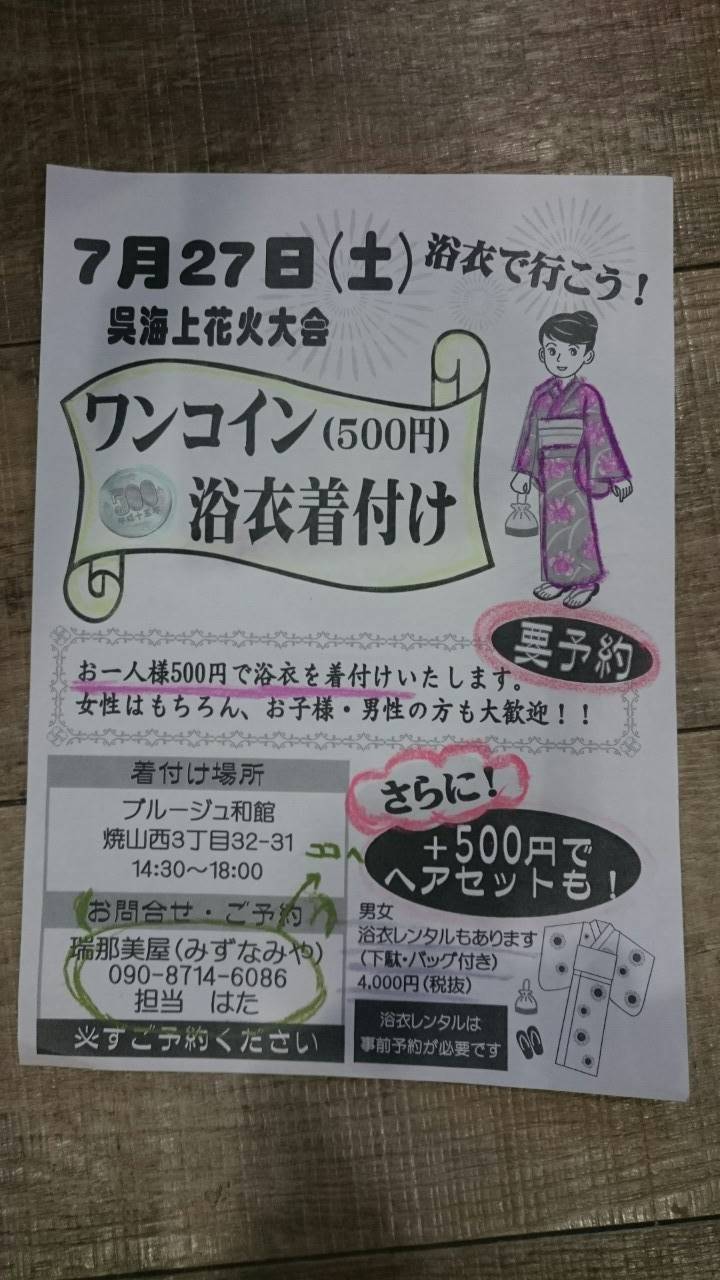 7月27日(土)
浴衣で行こう!
呉海上花火大会
ワンコイン(500円)
500
浴衣着付け
要予約
お一人様500円で浴衣を着付けいたします。
女性はもちろん、お子様・男性の方も大歓迎!!
着付け場所
ブルージュ和館
焼山西3丁目32-31
14:30～18:00
お問合せ・ご予約
瑞那美屋(みずなみや)
090-8714-6086
担当 はた
必ずご予約ください
さらに!
+500円で
ヘアセットも!
男女
浴衣レンタルもあります
(下駄・バッグ付き)
4,000円(税抜)
浴衣レンタルは
事前予約が必要です